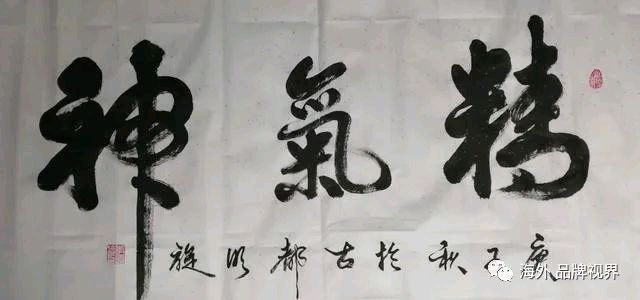 精氣神
庚子秋於古都
海外 品牌视界